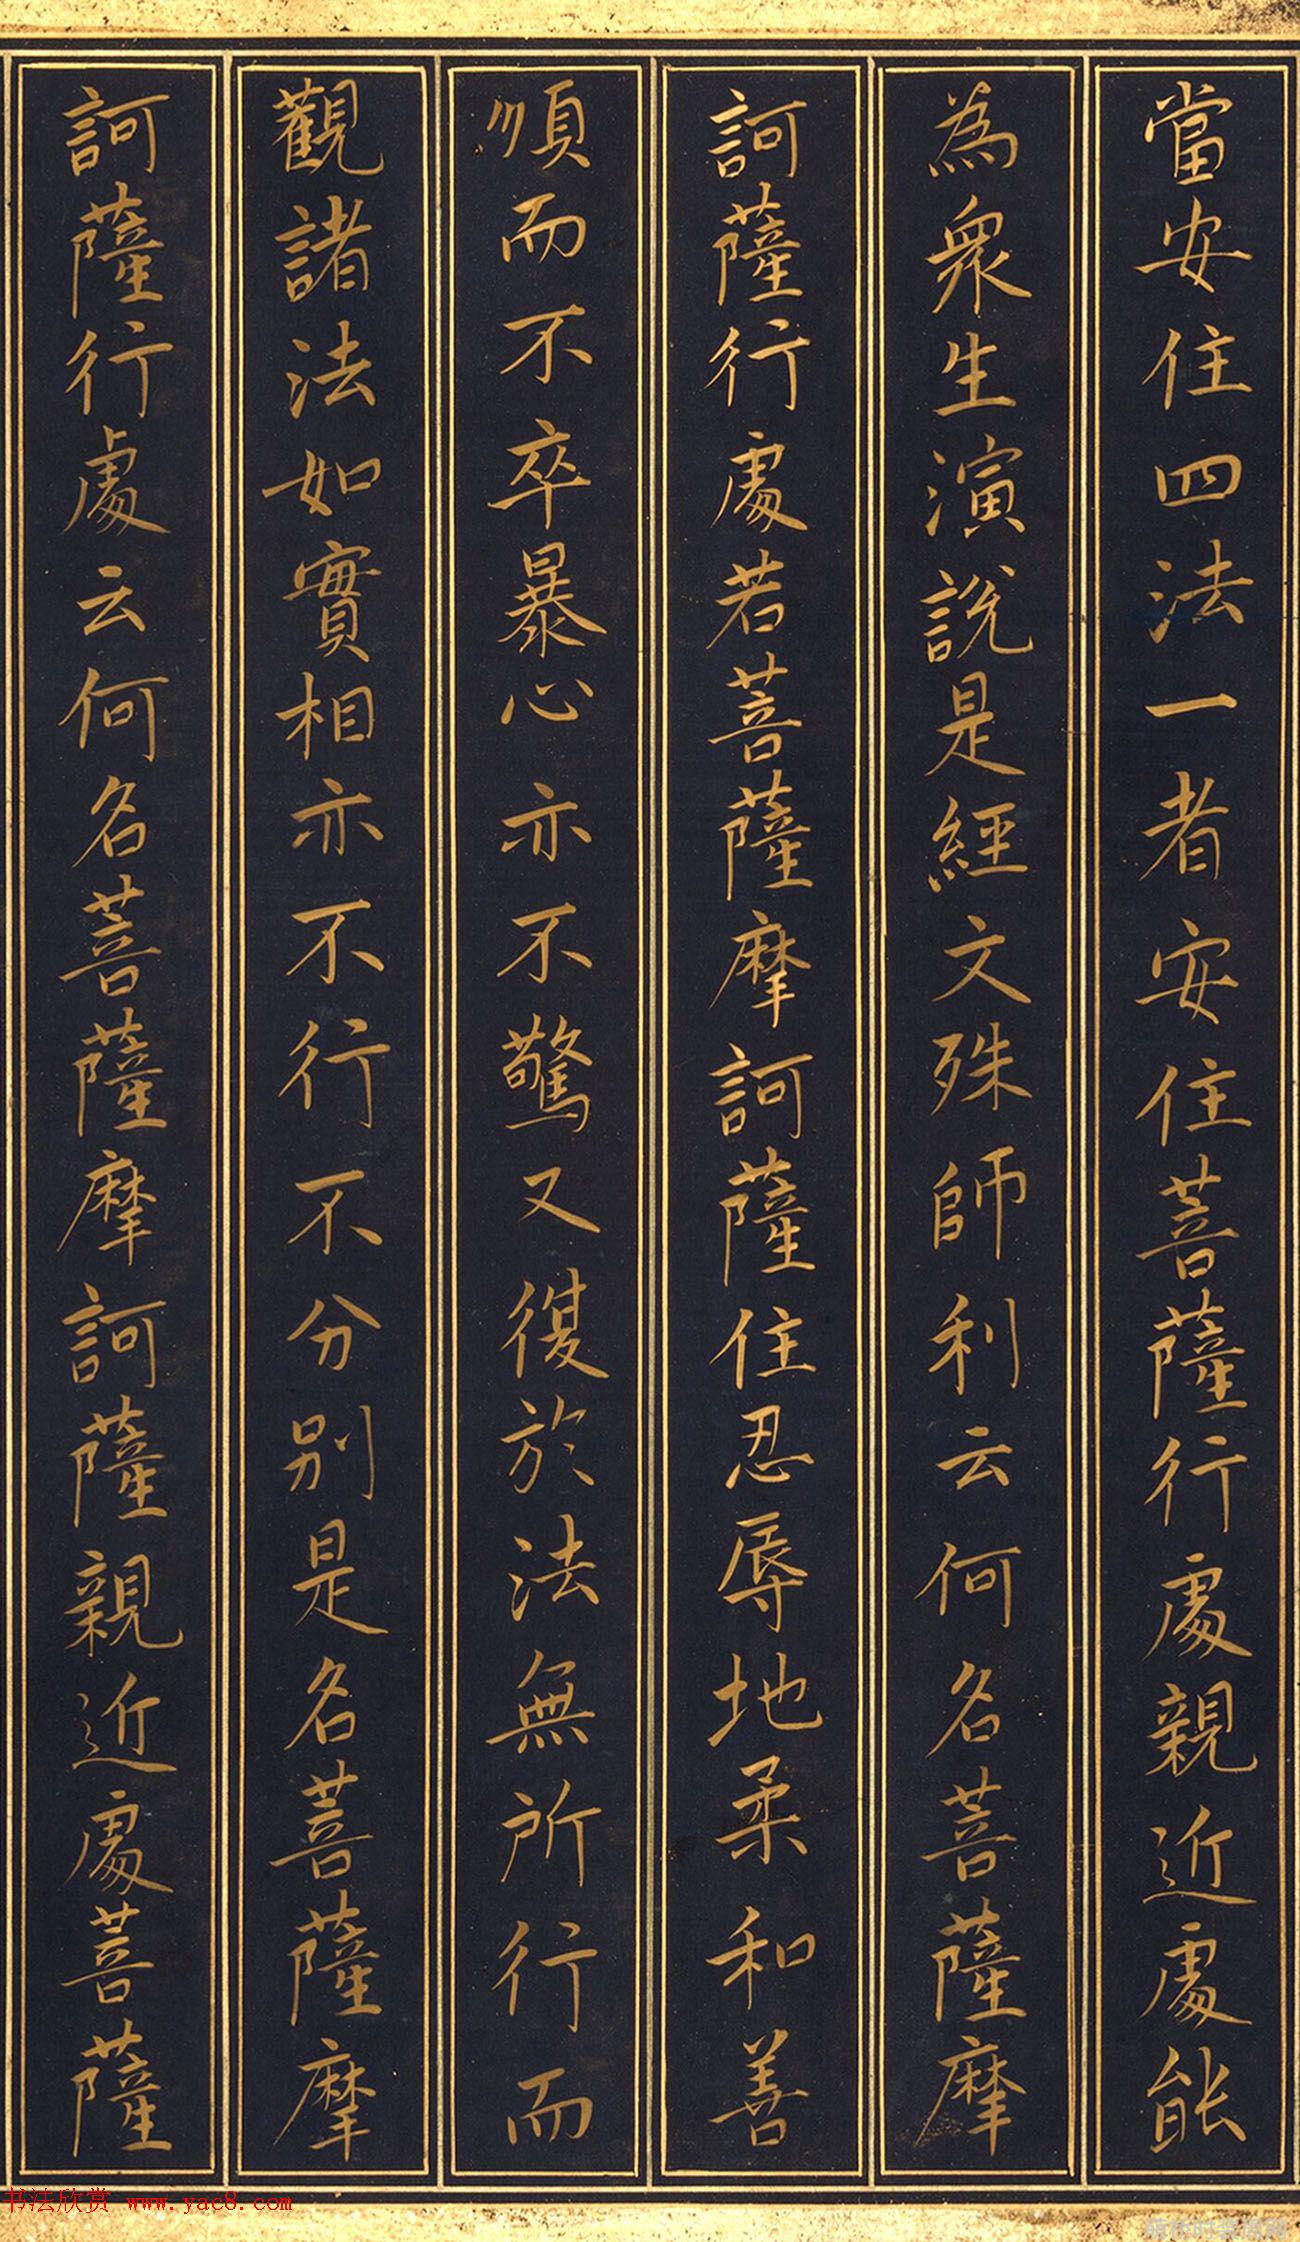 當安住四法一者安住菩薩行處親近處能
為眾生演說是經文殊師利云何名菩薩摩
訶薩行處若菩薩摩訶薩住忍辱地柔和善
順而不卒暴心亦不驚又復於法無所行而
觀諸法如實相亦不行不分別是名菩薩摩
訶薩行處云何名菩薩摩訶薩親近處菩薩
书法欣赏 www.yac8.com